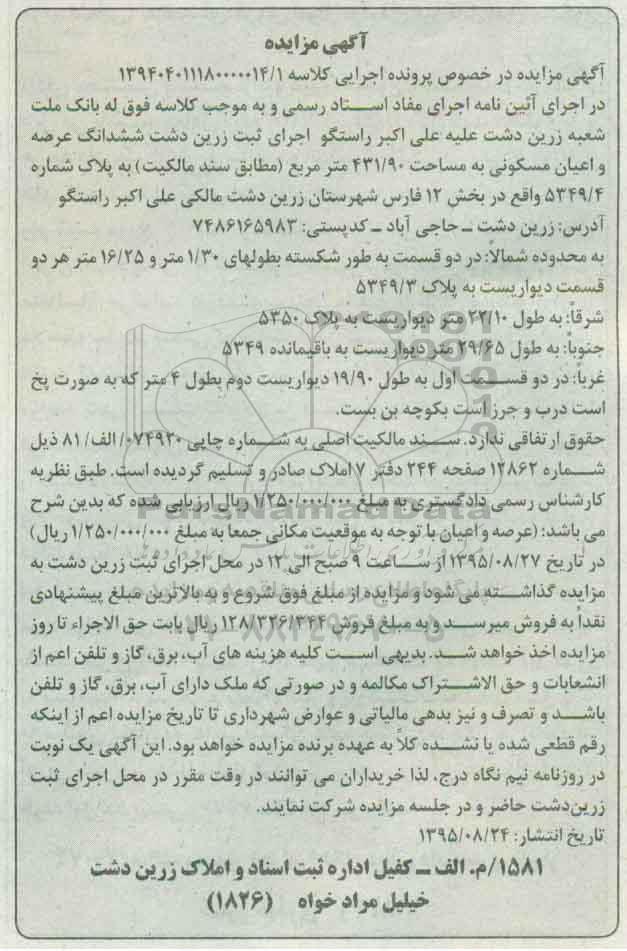 آگهی مزایده
آگهی مزایده در خصوص پرونده اجرایی کلاسه ۱۳۹۴۰۴۰۱۱۱۸۰۰۰۰۰۱۴/۱
در اجرای آئین نامه اجرای مفاد اسـتاد رسمی و به موجب کلاسه فوق له بانک ملت
شعبه زرین دشت علیه علی اکبر راستگو اجرای ثبت زرین دشت ششدانگ عرصه
و اعیان مسکونی به مساحت ۴۳۱/۹۰ متر مربع (مطابق سند مالکیت) به پلاک شماره
۵۳۴۹/۴ واقع در بخش ۱۲ فارس شهرستان زرین دشت مالکی علی اکبر راستگو
آدرس: زرین دشت ـ حاجی آباد ـ کدپستی: ۷۴۸۶۱۶۵۹۸۳
به محدوده شمالاً: در دو قسمت به طور شکسته بطولهای ۱/۳۰ متر و ۱۶/۲۵ متر هر دو
قسمت دیواریست به پلاک ۵۳۴۹/۳
شرقاً: به طول ۲۲/۱۰ متر دیواریست به پلاک ۵۳۵۰
جنوباً: به طول ۲۹/۶۵ متر دیواریست به باقیمانده ۵۳۴۹
غرباً: در دو قسـمت اول به طول ۱۹/۹۰ دیواریست دوم بطول ۴ متر که به صورت پخ
است درب و جرز است بکوچه بن بست.
حقوق ارتفاقی ندارد. سـند مالکیت اصلی به شـماره چاپی ۰۷۴۹۲۰/ الف/ ۸۱ ذیل
شـماره ۱۲۸۶۲ صفحه ۲۴۴ دفتر ۷ املاک صادر و تسلیم گردیده است. طبق نظریه
کارشناس رسمی دادگستری به مبلغ ۱/۲۵۰/۰۰۰/۰۰۰ ریال ارزیابی شده که بدین شرح
می باشد: (عرصه و اعیان با توجه به موقعیت مکانی جمعا به مبلغ ۱/۲۵۰/۰۰۰/۰۰۰ ریال)
در تاریخ ۱۳۹۵/۰۸/۲۷ از سـاعت ۹ صبح الی ۱۲ در محل اجرای ثبت زرین دشت به
مزایده گذاشـته می شود و مزایده از مبلغ فوق شروع و به بالاترین مبلغ پیشنهادی
نقداً به فروش میرسـد و به مبلغ فروش ۱۲۸/۳۲۶/۳۴۴ ریال بابت حق الاجراء تا روز
مزایده اخذ خواهد شـد. بدیهی اسـت کلیه هزینه های آب، برق، گاز و تلفن اعم از
انشعابات و حق الاشـتراک مکالمه و در صورتی که ملک دارای آب، برق، گاز و تلفن
باشـد و تصرف و نیز بدهی مالیاتی و عوارض شهرداری تا تاریخ مزایده اعم از اینکه
رقم قطعی شده یا نشـده کلاً به عهده برنده مزایده خواهد بود. این آگهی یک نوبت
در روزنامه نیم نگاه درج، لذا خریداران می توانند در وقت مقرر در محل اجرای ثبت
زرین‌دشت حاضر و در جلسه مزایده شرکت نمایند.
تاریخ انتشار: ۱۳۹۵/۰۸/۲۴
۱۵۸۱/م. الف ـ کفیل اداره ثبت اسناد و املاک زرین دشت
خیلیل مراد خواه (۱۸۲۶)
ParsNamadData